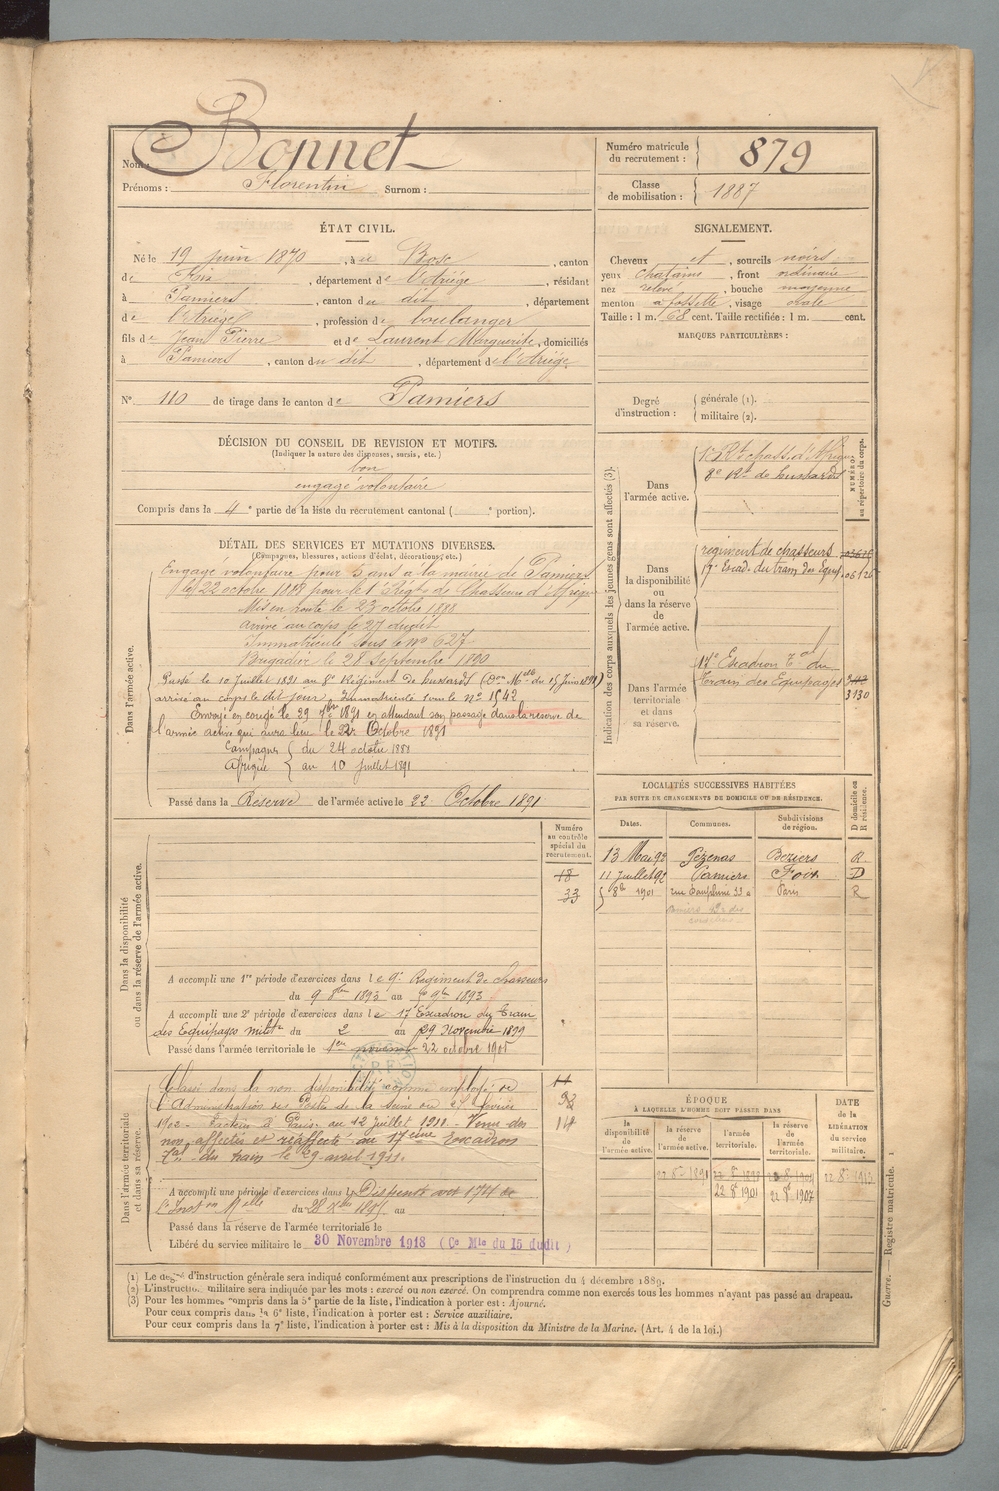 Nom : Bonnet
Prénoms : Florentin Surnom :
Numéro matricule du recrutement : 879
Classe de mobilisation : 1887
ÉTAT CIVIL.
Né le 19 juin 1870, à u Bosc, canton
de Foix, département de l'Ariège, résidant
à Pamiers, canton du dit, département
de l'Ariège, profession de boulanger
fils de Jean Pierre et de Laurent Marguerite, domiciliés
à Pamiers, canton du dit, département de l'Ariège
N° 110 de tirage dans le canton de Pamiers
SIGNALEMENT.
Cheveux et, sourcils noirs
yeux chatains, front ordinaire
nez relevé, bouche moyenne
menton à fossette, visage ovale
Taille : 1 m. 68 cent. Taille rectifiée : 1 m. cent.
MARQUES PARTICULIÈRES :
Degré d'instruction : générale (1).
militaire (2).
DÉCISION DU CONSEIL DE REVISION ET MOTIFS.
(Indiquer la nature des dispenses, sursis, etc.)
bon
engagé volontaire
Compris dans la 4e partie de la liste du recrutement cantonal ( e portion).
DÉTAIL DES SERVICES ET MUTATIONS DIVERSES.
(Campagnes, blessures, actions d'éclat, décorations, etc.)
Dans l'armée active.
Engagé volontaire pour 3 ans à la mairie de Pamiers
le 22 octobre 1888 pour le 1er Régt de Chasseurs d'Afrique
Mis en route le 23 octobre 1888
Arrivé au corps le 27 dudit
Immatriculé sous le No 627
Brigadier le 28 Septembre 1890
Passé le 10 Juillet 1891 au 8e Régiment de hussards (Don Melle du 15 Juin 1891)
arrivé au corps le dit jour, Immatriculé sous le no 1542
Envoyé en congé le 29 7bre 1891 en attendant son passage dans la réserve de
l'armée active qui aura lieu le 22 Octobre 1891
Campagne du 24 octobre 1888
Afrique au 10 Juillet 1891
Passé dans la Réserve de l'armée active le 22 Octobre 1891
Indication des corps auxquels les jeunes gens sont affectés (3).
NUMÉRO au répertoire du corps.
Dans l'armée active.
1er Rt chass. d'Afrique
8e Rt de hussards
Dans la disponibilité ou dans la réserve de l'armée active.
régiment de chasseurs
17e Escad. du train des Equip.
Dans l'armée territoriale et dans sa réserve.
17e Escadron Tal du
train des Equipages
3130
LOCALITÉS SUCCESSIVES HABITÉES
PAR SUITE DE CHANGEMENTS DE DOMICILE OU DE RÉSIDENCE.
Dates. Communes. Subdivisions de région. D domicile ou R résidence.
13 Mai 92 Pézenas Beziers R
11 Juillet 92 Pamiers Foix D
8bre 1901 rue Dauphine 33 Paris R
Dans la disponibilité ou dans la réserve de l'armée active.
Numéro au contrôle spécial du recrutement.
18
33
A accompli une 1re période d'exercices dans le 9e Régiment de Chasseurs
du 9 8bre 1893 au 9bre 1893
A accompli une 2e période d'exercices dans le 17 Escadron du Train
des Equipages militre du 2 au 29 Novembre 1899
Passé dans l'armée territoriale le 1er novem 22 octobre 1901
Dans l'armée territoriale et dans sa réserve.
Classé dans la non disponibilité comme employé de
l'Administration des Postes de la Seine du 27 février
1902 - Facteur à Paris - au 12 Juillet 1910 - Venu des
non affectés et réaffecté au 17ème Escadron
Tal du train le 29 avril 1911.
14
A accompli une période d'exercices dans l Dispensé art 174 de
l'Inst on Melle du au
Passé dans la réserve de l'armée territoriale le
Libéré du service militaire le 30 Novembre 1918 (Ce Mle du 15 dudit)
ÉPOQUE
À LAQUELLE L'HOMME DOIT PASSER DANS
la disponibilité de l'armée active. la réserve de l'armée active. l'armée territoriale. la réserve de l'armée territoriale.
DATE de la LIBÉRATION du service militaire.
22 8re 1891
22 8e 1901 22 8e 1907
22 8e 1913
(1) Le degré d'instruction générale sera indiqué conformément aux prescriptions de l'instruction du 4 décembre 1889.
(2) L'instruction militaire sera indiquée par les mots : exercé ou non exercé. On comprendra comme non exercés tous les hommes n'ayant pas passé au drapeau.
(3) Pour les hommes compris dans la 5e partie de la liste, l'indication à porter est : Ajourné.
Pour ceux compris dans la 6e liste, l'indication à porter est : Service auxiliaire.
Pour ceux compris dans la 7e liste, l'indication à porter est : Mis à la disposition du Ministre de la Marine. (Art. 4 de la loi.)
Guerre. — Registre matricule. 1